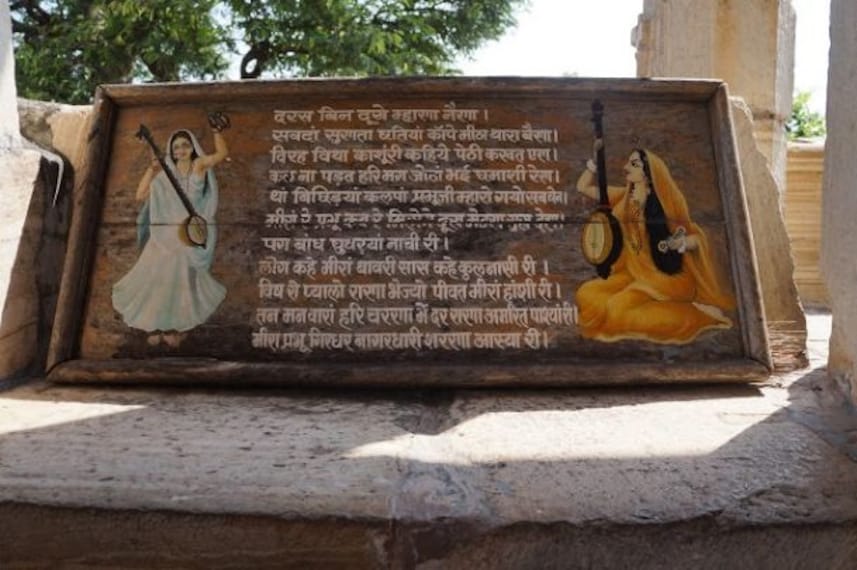 दरस बिन दूशे म्हारा नैणा ।
सबदां सुणता छतियां काँपे मीठा थारा बैणा।
विरह विथा कासूंरी कहिये पेठी करवत एण।
कल ना पड़त हरि मग जोतां भई छमाशी रेण।
थां बिछड़ियां कलपां प्रभुजी म्हारो गयो सब चेन।
मीरां रे प्रभु कब रे
पग बांध घुघरया नाची री ।
लोग कहे मीरां बावरी सास कहे कुलनासी री ।
विष रो प्यालो राणा भेज्यो पीवत मीरां हांशी री ।
तन मन वारां हरि चरणा में दरसण अमरित पाश्यांरी
मीरा प्रभू गिरधर नागरधारी शरणा आस्या री ।